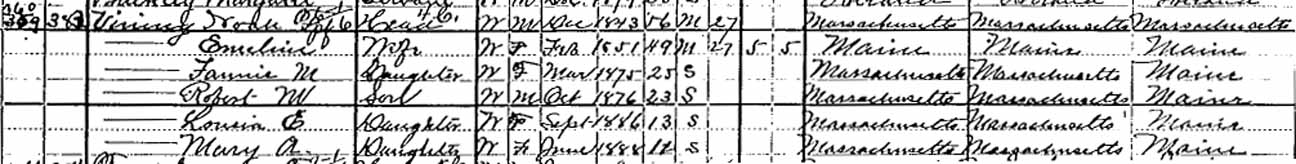 360
359 383 Vining Noah Head W M Dec 1843 56 M 27 Massachusetts Massachusetts Massachusetts
Emeline Wife W F Feb 1851 49 M 27 5 5 Maine Maine Maine
Fannie M Daughter W F Mar 1875 25 S Massachusetts Massachusetts Maine
Robert W Son W M Oct 1876 23 S Massachusetts Massachusetts Maine
Louisa E Daughter W F Sept 1886 13 S Massachusetts Massachusetts Maine
Mary A. Daughter W F June 1888 11 S Massachusetts Massachusetts Maine